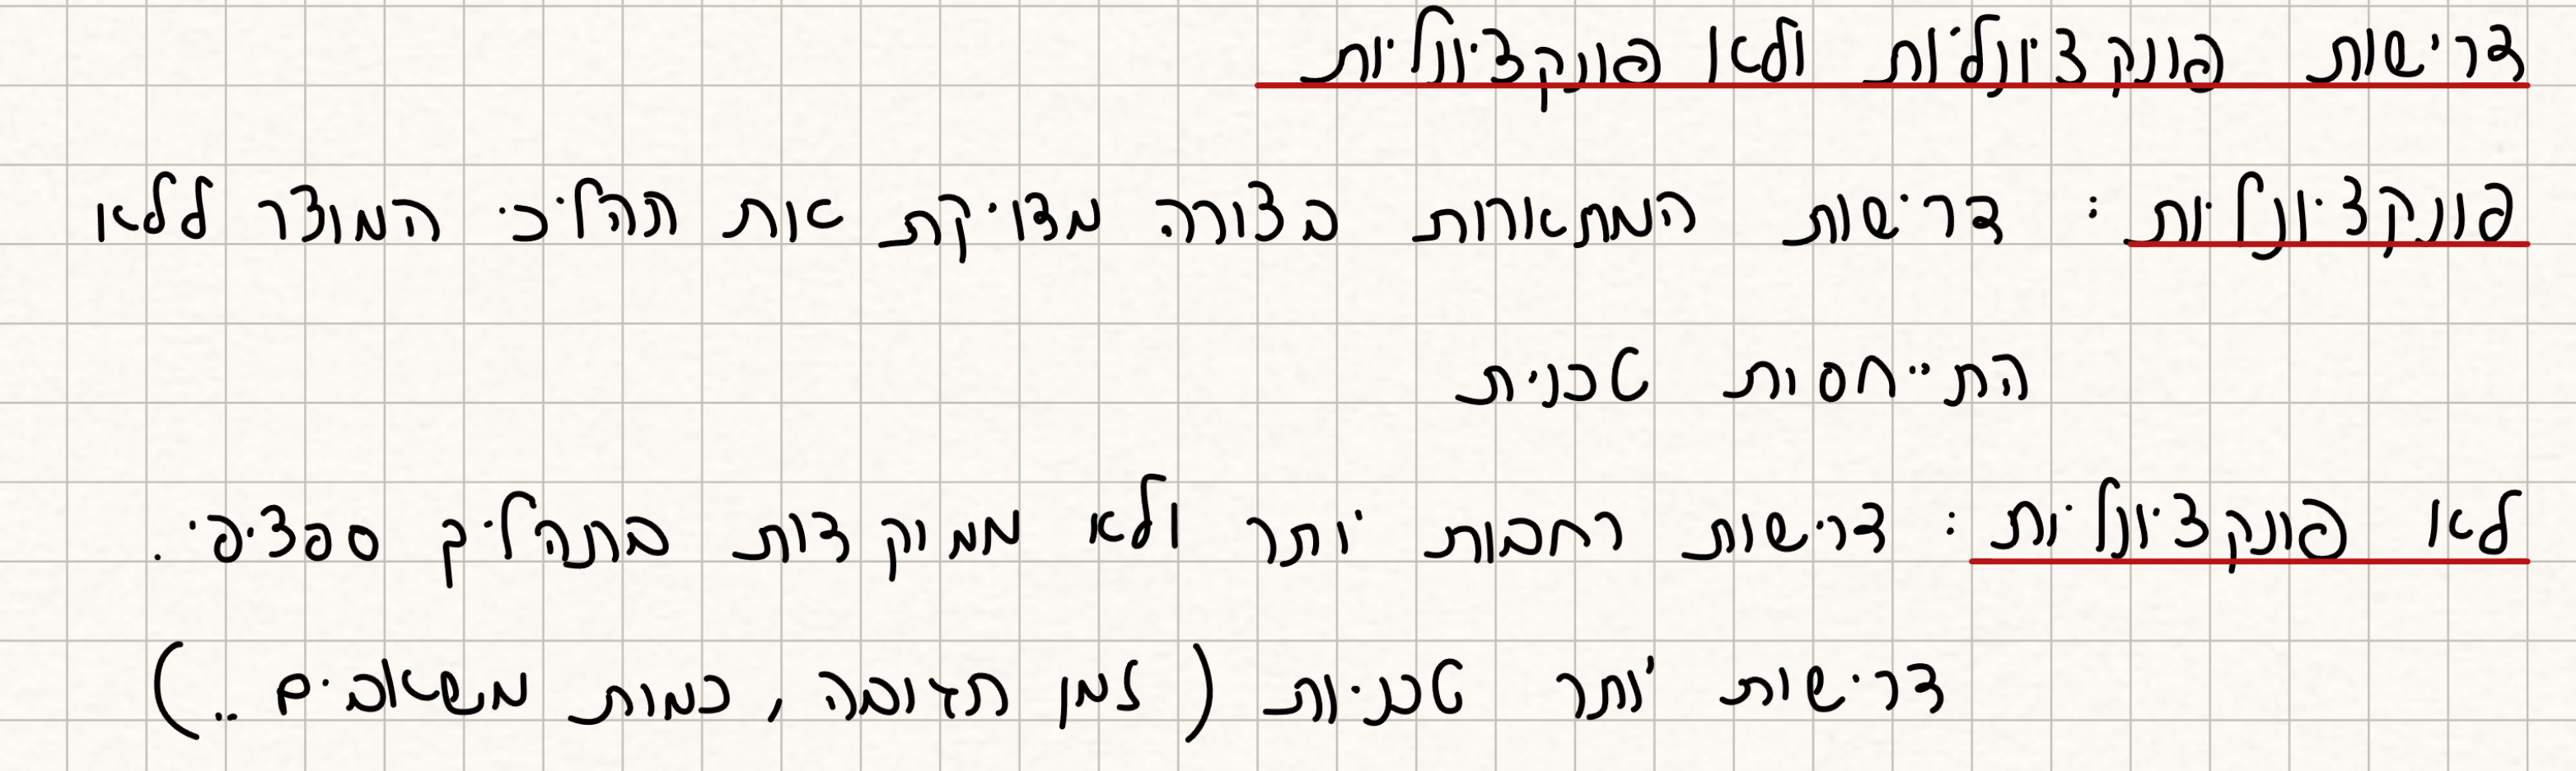 דרישות פונקציונליות ולא פונקציונליות
פונקציונליות : דרישות המתארות בצורה מדויקת את תהליכי המוצר ללא
התייחסות טכנית
לא פונקציונליות : דרישות רחבות יותר ולא ממוקדות בתהליך ספציפי .
דרישות יותר טכניות ( זמן תגובה , כמות משאבים .. )